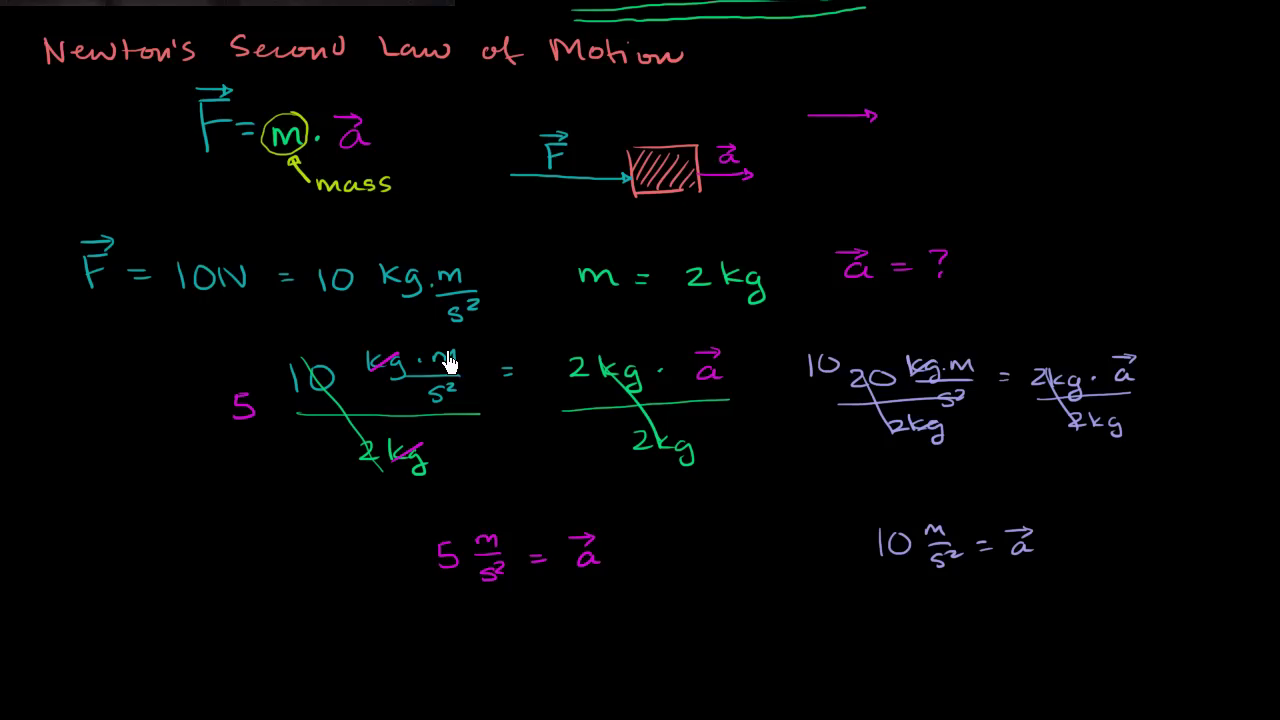 Newton's Second Law of Motion
F = m · a
mass
F
a
F = 10N = 10 kg · m/s²
m = 2kg
a = ?
5 10 kg · m/s² / 2kg = 2kg · a / 2kg
10 20 kg · m/s² / 2kg = 2kg · a / 2kg
5 m/s² = a
10 m/s² = a